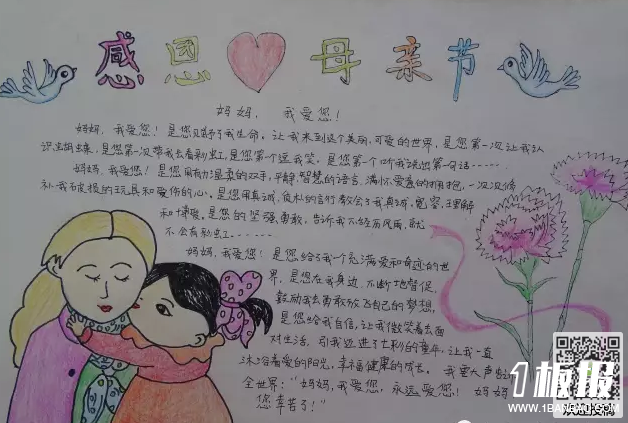 感恩 母亲节
妈妈，我爱您！
妈妈，我爱您！是您赐予了我生命。让我来到这个美丽，可爱的世界，是您第一次让我认
识蝴蝶，是您第一次带我去看彩虹，是您第一个逗我笑，是您第一个听我说出第一句话……
妈妈，我爱您！是您用有力温柔的双手，平静，智慧的语言，满怀爱意的拥抱，一次次修
补我破损的玩具和受伤的心。是您用真诚，质朴的言行教会了我真诚，宽容，理解
和博爱。是您的坚强勇敢，告诉我不经历风雨，就
不会有彩虹……
妈妈，我爱您！是您给了我一个充满爱和奇迹的世
界，是您在我身边，不断地督促，
鼓励我去勇敢放飞自己的梦想，
是您给我自信，让我微笑着去面
对生活，引我迈进了七彩的童年，让我一直
沐浴着爱的阳光，幸福健康的成长。我要大声告诉
全世界：“妈妈，我爱您，永远爱您！妈妈
您辛苦了！”
1板报
WWW.1BANBAO.COM
欢迎投稿